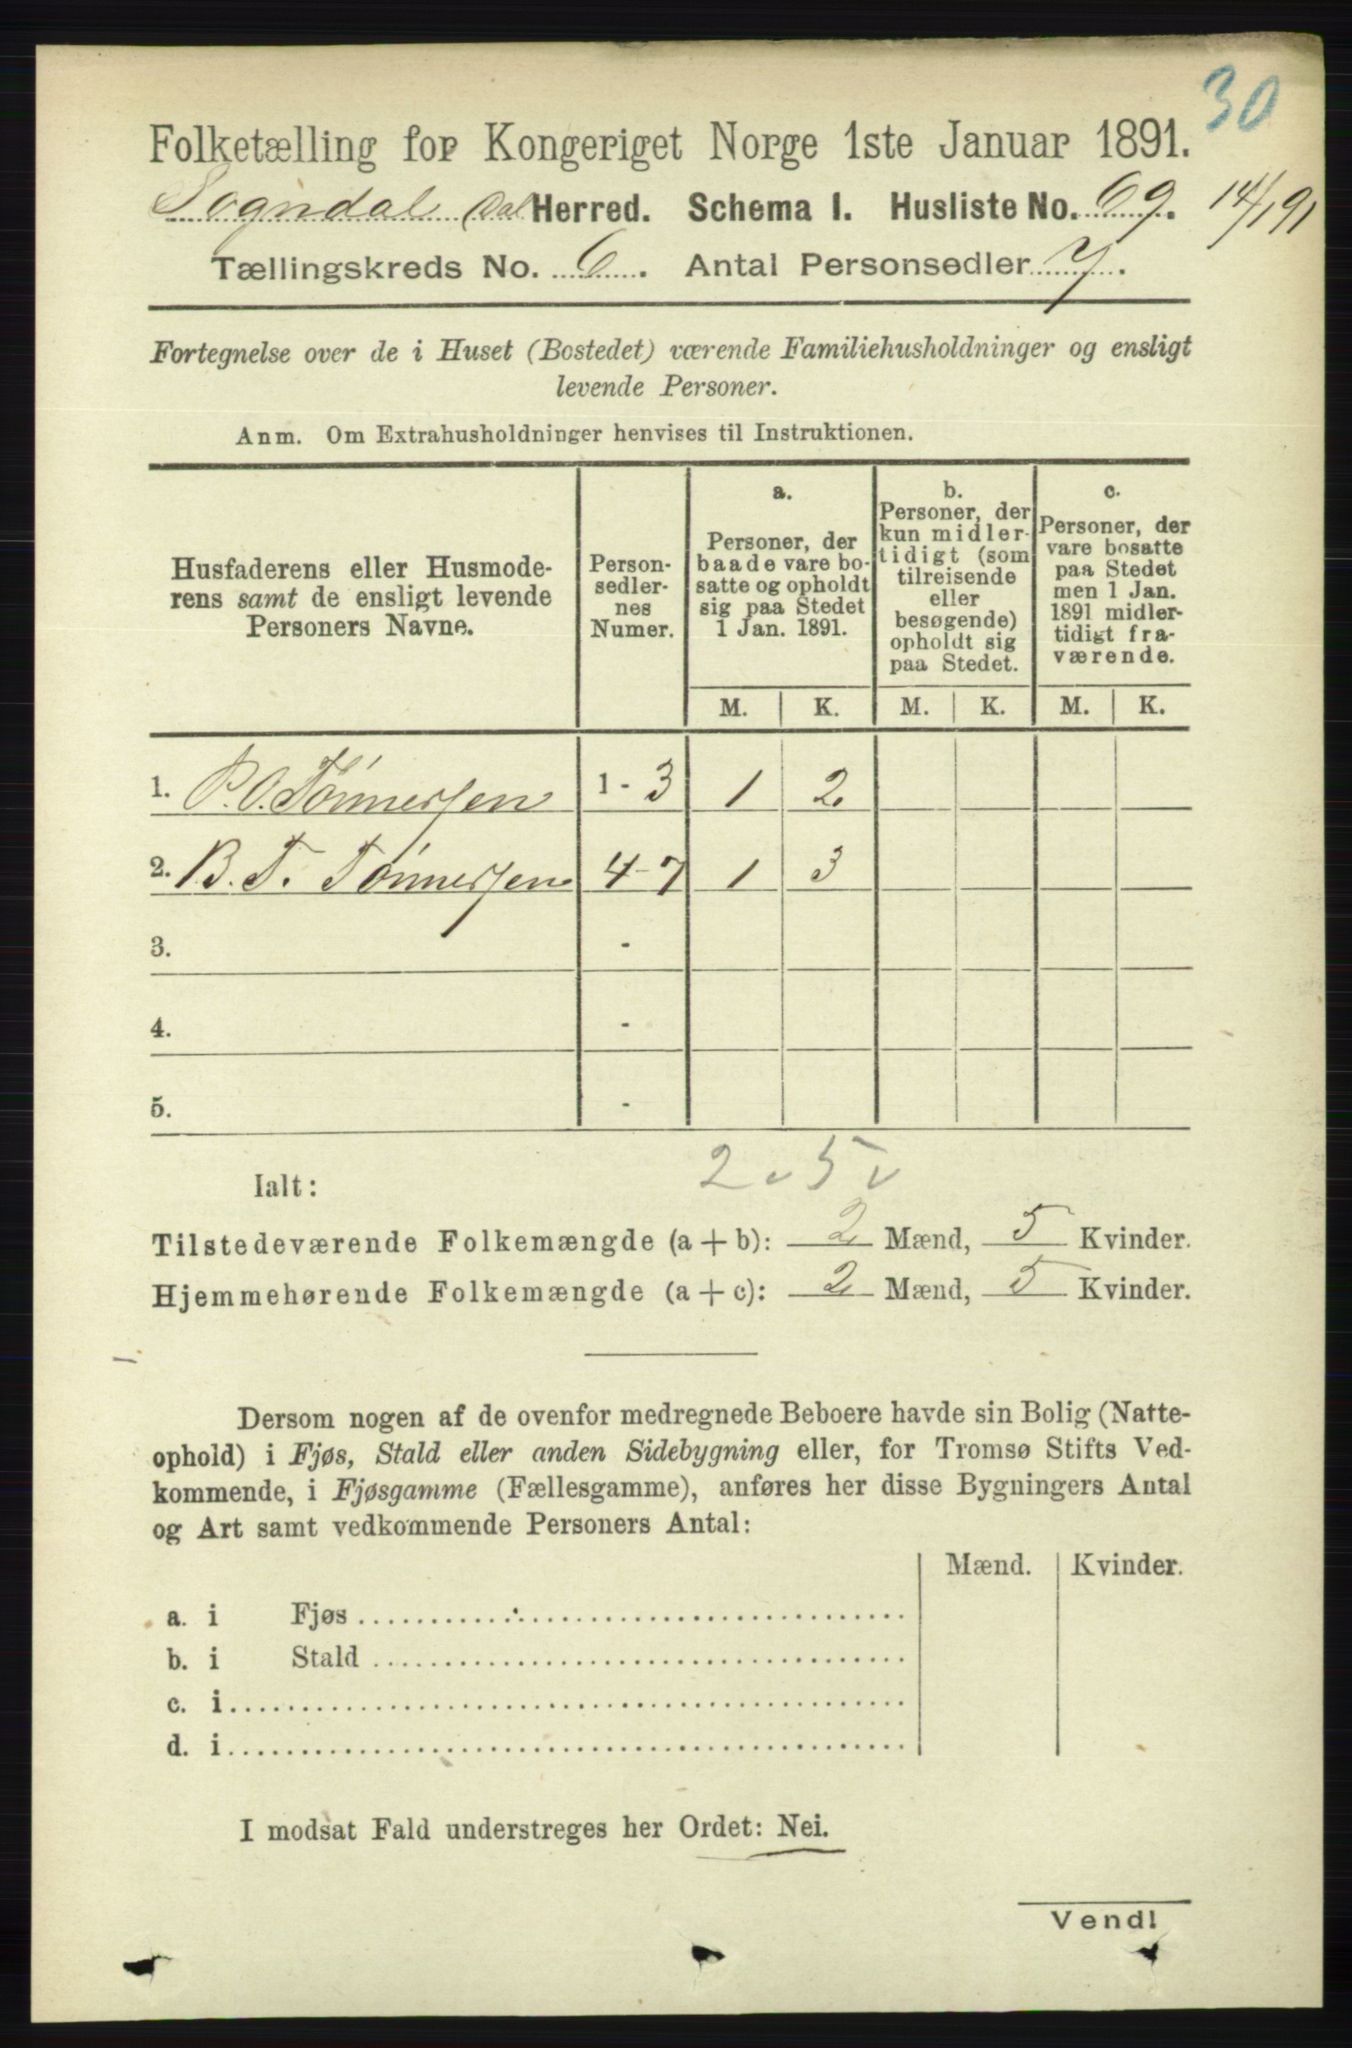 30
Folketælling for Kongeriget Norge 1ste Januar 1891.
Sogndal Dal Herred. Schema I. Husliste No. 69. 14/1 91
Tællingskreds No. 6. Antal Personsedler 7.
Fortegnelse over de i Huset (Bostedet) værende Familiehusholdninger og ensligt
levende Personer.
Anm. Om Extrahusholdninger henvises til Instruktionen.
Husfaderens eller Husmode-
rens samt de ensligt levende
Personers Navne.
Person-
sedler-
nes
Numer.
a.
Personer, der
baade vare bo-
satte og opholdt
sig paa Stedet
1 Jan. 1891.
b.
Personer, der
kun midler-
tidigt (som
tilreisende
eller
besøgende)
opholdt sig
paa Stedet.
c.
Personer, der
vare bosatte
paa Stedet
men 1 Jan.
1891 midler-
tidigt fra-
værende.
M. K. M. K. M. K.
1. P. O. Tönnessen 1 - 3 1 2
2. B. T. Tönnessen 4 - 7 1 3
3. -
4. -
5. -
2 v 5 v
Ialt:
Tilstedeværende Folkemængde (a + b): 2 Mænd, 5 Kvinder.
Hjemmehørende Folkemængde (a + c): 2 Mænd, 5 Kvinder.
Dersom nogen af de ovenfor medregnede Beboere havde sin Bolig (Natte-
ophold) i Fjøs, Stald eller anden Sidebygning eller, for Tromsø Stifts Ved-
kommende, i Fjøsgamme (Fællesgamme), anføres her disse Bygningers Antal
og Art samt vedkommende Personers Antal:
Mænd. Kvinder.
a. i Fjøs
b. i Stald
c. i
d. i
I modsat Fald understreges her Ordet: Nei.
Vend!